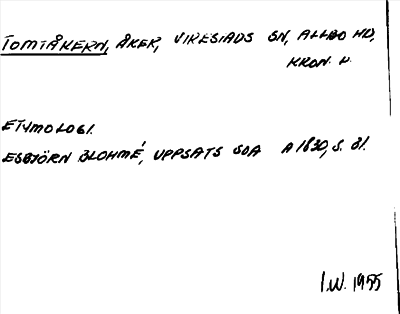 TOMTÅKERN, ÅKER, VIRESTADS SN, ALLBO HD,
KRON. L.
ETYMOLOGI.
ESBJÖRN BLOHMÉ, UPPSATS SOA A 1830, S. 81.
I.W. 1955